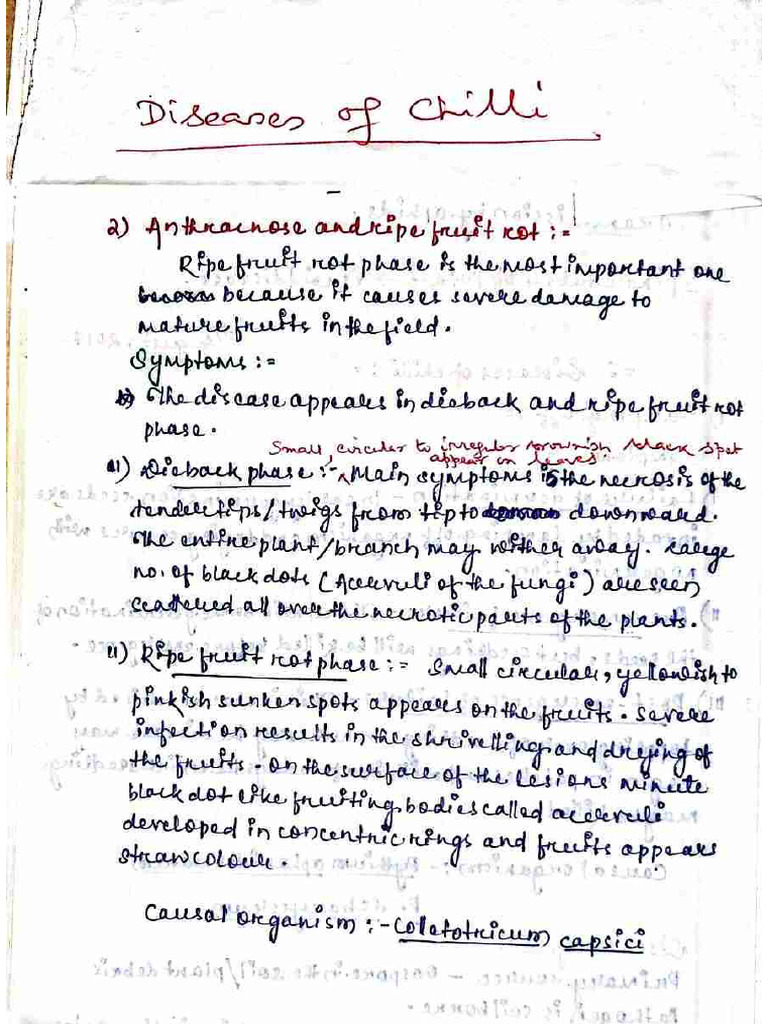 Diseases of Chilli
2) Anthracnose and ripe fruit rot :=
Ripe fruit rot phase is the most important one
because it causes severe damage to
mature fruits in the field.
Symptoms :=
The disease appears in dieback and ripe fruit rot
phase.
Small, circular to irregular brownish black spot
appear on leaves
i) Dieback phase :- Main symptoms is the necrosis of the
tender tips/twigs from tip to downward.
The entire plant/branch may wither away. Large
no. of black dots (Acervuli of the fungi) are seen
scattered all over the necrotic parts of the plants.
ii) Ripe fruit rot phase := Small circular, yellowish to
pinkish sunken spots appears on the fruits. Severe
infection results in the shrivelling and drying of
the fruits. On the surface of the lesions minute
black dot like fruiting bodies called acervuli
developed in concentric rings and fruits appears
straw colour.
Causal organism :- Colletotricum capsici